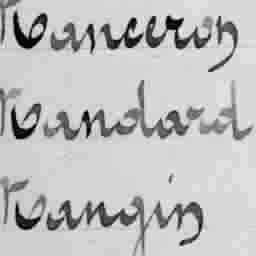 Manceron
Mandard
Mangin